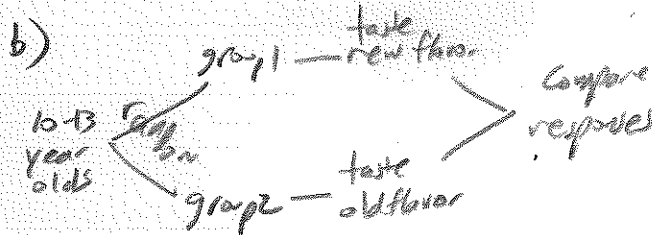 b)
10-13
year
olds
random
group1
taste
new flavor
group2
taste
old flavor
Compare
responses